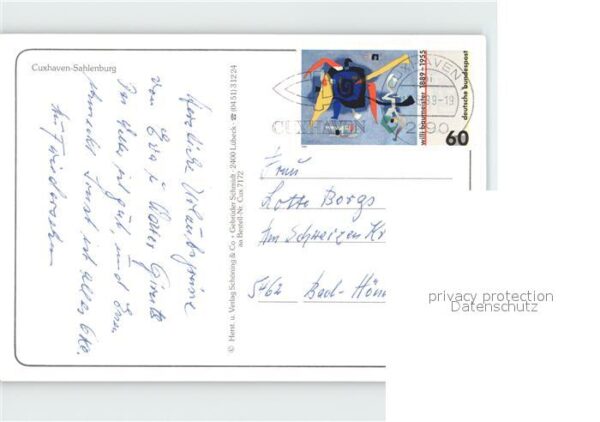 Cuxhaven-Sahlenburg
Herzliche Urlaubsgrüsse
von Eva u. Walter
Das Wetter ist gut, und Essen
schmeckt. Sonst ist alles Oke.
Auf Wiedersehen
© Herst. u. Verlag Schöning & Co · Gebrüder Schmidt · 2400 Lübeck · ☎ (0451) 3 12 24
so Bestell-Nr. Cux 7172
willi baumeister 1889 - 1955
deutsche bundespost
60
CUXHAVEN
2190
89-19
Frau
Lotte Borgs
Am Schwarzen Kr
5462 Bad-Hön
privacy protection
Datenschutz